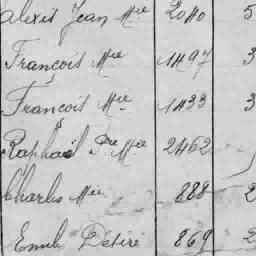 Alexis Jean Mie 2040 5
François Mie 1497 3
François Mie 1433 3
Raphael Pre Mie 2462
Charles Mie 888 2
Emile Désiré 869 2